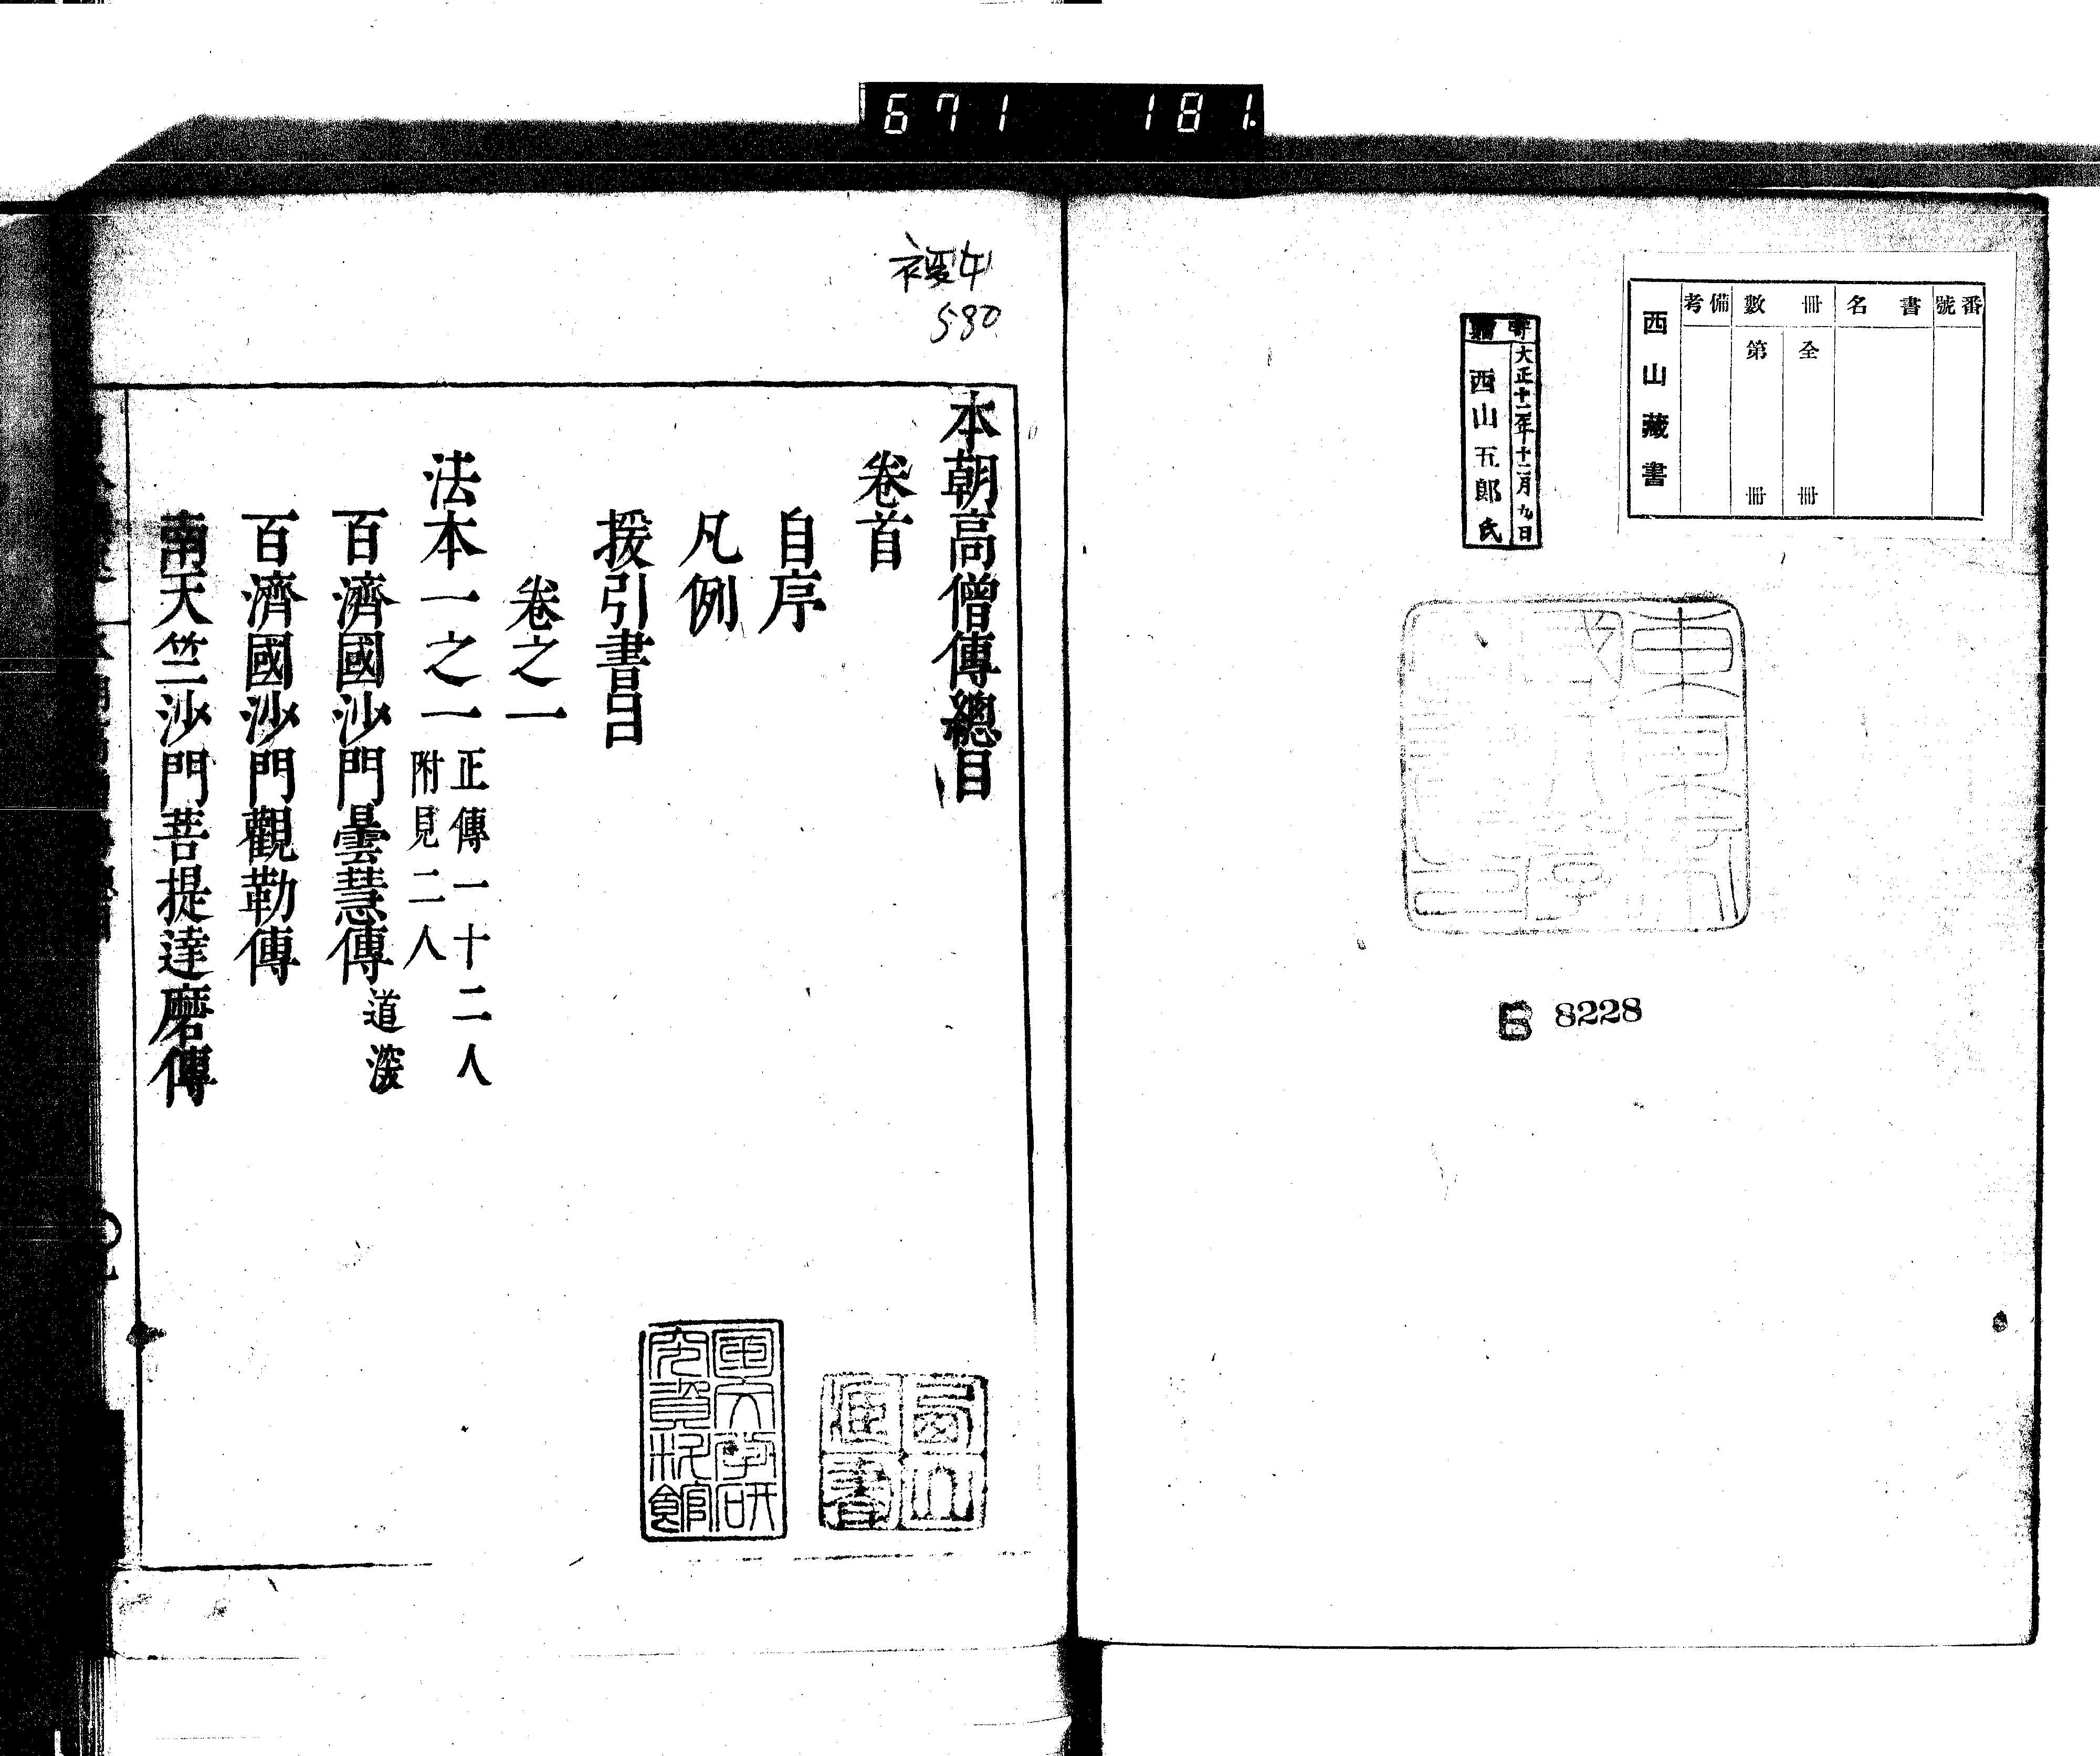 671 181
番號
書名
冊數
全 冊
第 冊
備考
西山藏書
寄贈
大正十二年十二月九日
西山五郎氏
8228
580
本朝高僧傳總目
卷首
自序
凡例
援引書目
卷之一
法本一之一 正傳一十二人 附見二人
百濟國沙門曇慧傳 道深
百濟國沙門觀勒傳
南天竺沙門菩提達磨傳